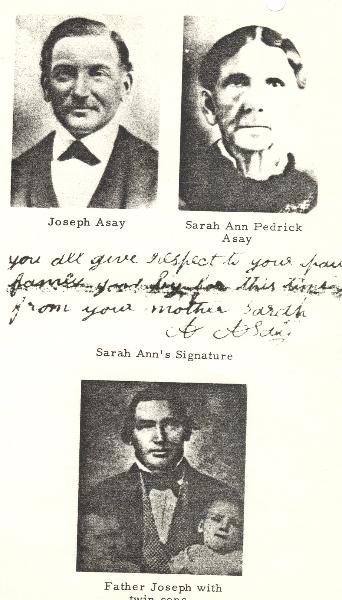 Joseph Asay
Sarah Ann Pedrick
Asay
you all give respect to your
good by for this time
from your mother Sarah
A Asay
Sarah Ann's Signature
Father Joseph with
twin sons